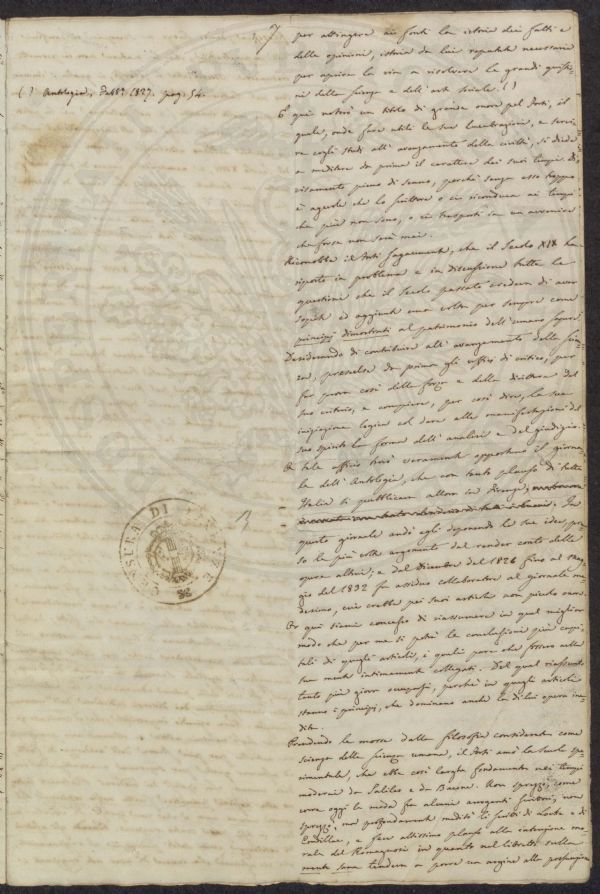 7
( ) Antologia, Febb.º 1827. pag. 54.
per attingere ai fonti la istoria dei fatti e
delle opinioni, istoria da lui reputata necessaria
per aprirsi la via a risolvere le grandi quisti-
ni della scienza e dell'arte sociale. ( )
E qui noterò un titolo di grande onore pel Forti, il
quale, onde fare utili le sue lucubrazioni, e servi-
re cogli studj all'avanzamento della civiltà, si diede
a meditare da prima il carattere dei suoi tempi. Di-
visamento pieno di senno, perchè senza esso troppo
è agevole che lo scrittore o ci riconduca ai tempi
che più non sono, o ci trasporti in un avvenire
che forse non sarà mai.
Riconobbe il Forti sagacemente, che il Secolo XIX ha
riposto in problema e in discussione tutte le
questioni che il Secolo passato credeva di aver
sopite ed aggiunte una volta per sempre come
principj dimostrati al patrimonio dell'umano sapere.
Desiderando di contribuire all'avanzamento della scien-
za, prescelse da prima gli uffici di critico, per
far prova così della forza e della dirittura del
suo criterio, e compiere, per così dire, la sua
iniziazione logica col dare alle manifestazioni del
suo spirito la forma dell'analisi e del giudizio.
A tale officio trovò veramente opportuno il giorna-
le dell'Antologia, che con tanto plauso di tutta
Italia si pubblicava allora in Firenze,
In
questo giornale andò egli deponendo le sue idee pre-
so le più volte argomento dal render conto delle
opere altrui; e dal Dicembre del 1826 fino al Mag-
gio del 1832 fu assiduo collaboratore al giornale me-
desimo, cui crebbe pei suoi articoli non piccolo onore.
Or qui siami concesso di riassumere in quel miglior
modo che per me si potrà le conclusioni più capi-
tali di quegli articoli, i quali pare che fossero nella
sua mente intimamente collegati. Del qual riassunto
tanto più giova occuparsi, perchè in quegli articoli
stanno i principj, che dominano anche la di lui opera ine-
dita.
Prendendo le mosse dalla filosofia considerata come
scienza delle scienze umane, il Forti amò la scuola spe-
rimentale, che ebbe così larghe fondamenta nei tempi
moderni da Galileo e da Bacone. Non sprezzò, come
corre oggi la moda fra alcuni arroganti scrittori, non
sprezzò, ma profondamente meditò gli scritti di Locke e di
Condillac, e fece altissimo plauso alla intenzione mo-
rale del Romagnosi in quanto nel libretto sulla
mente sana tendeva a porre un argine alla prosunzione
CENSURA DI FIRENZE